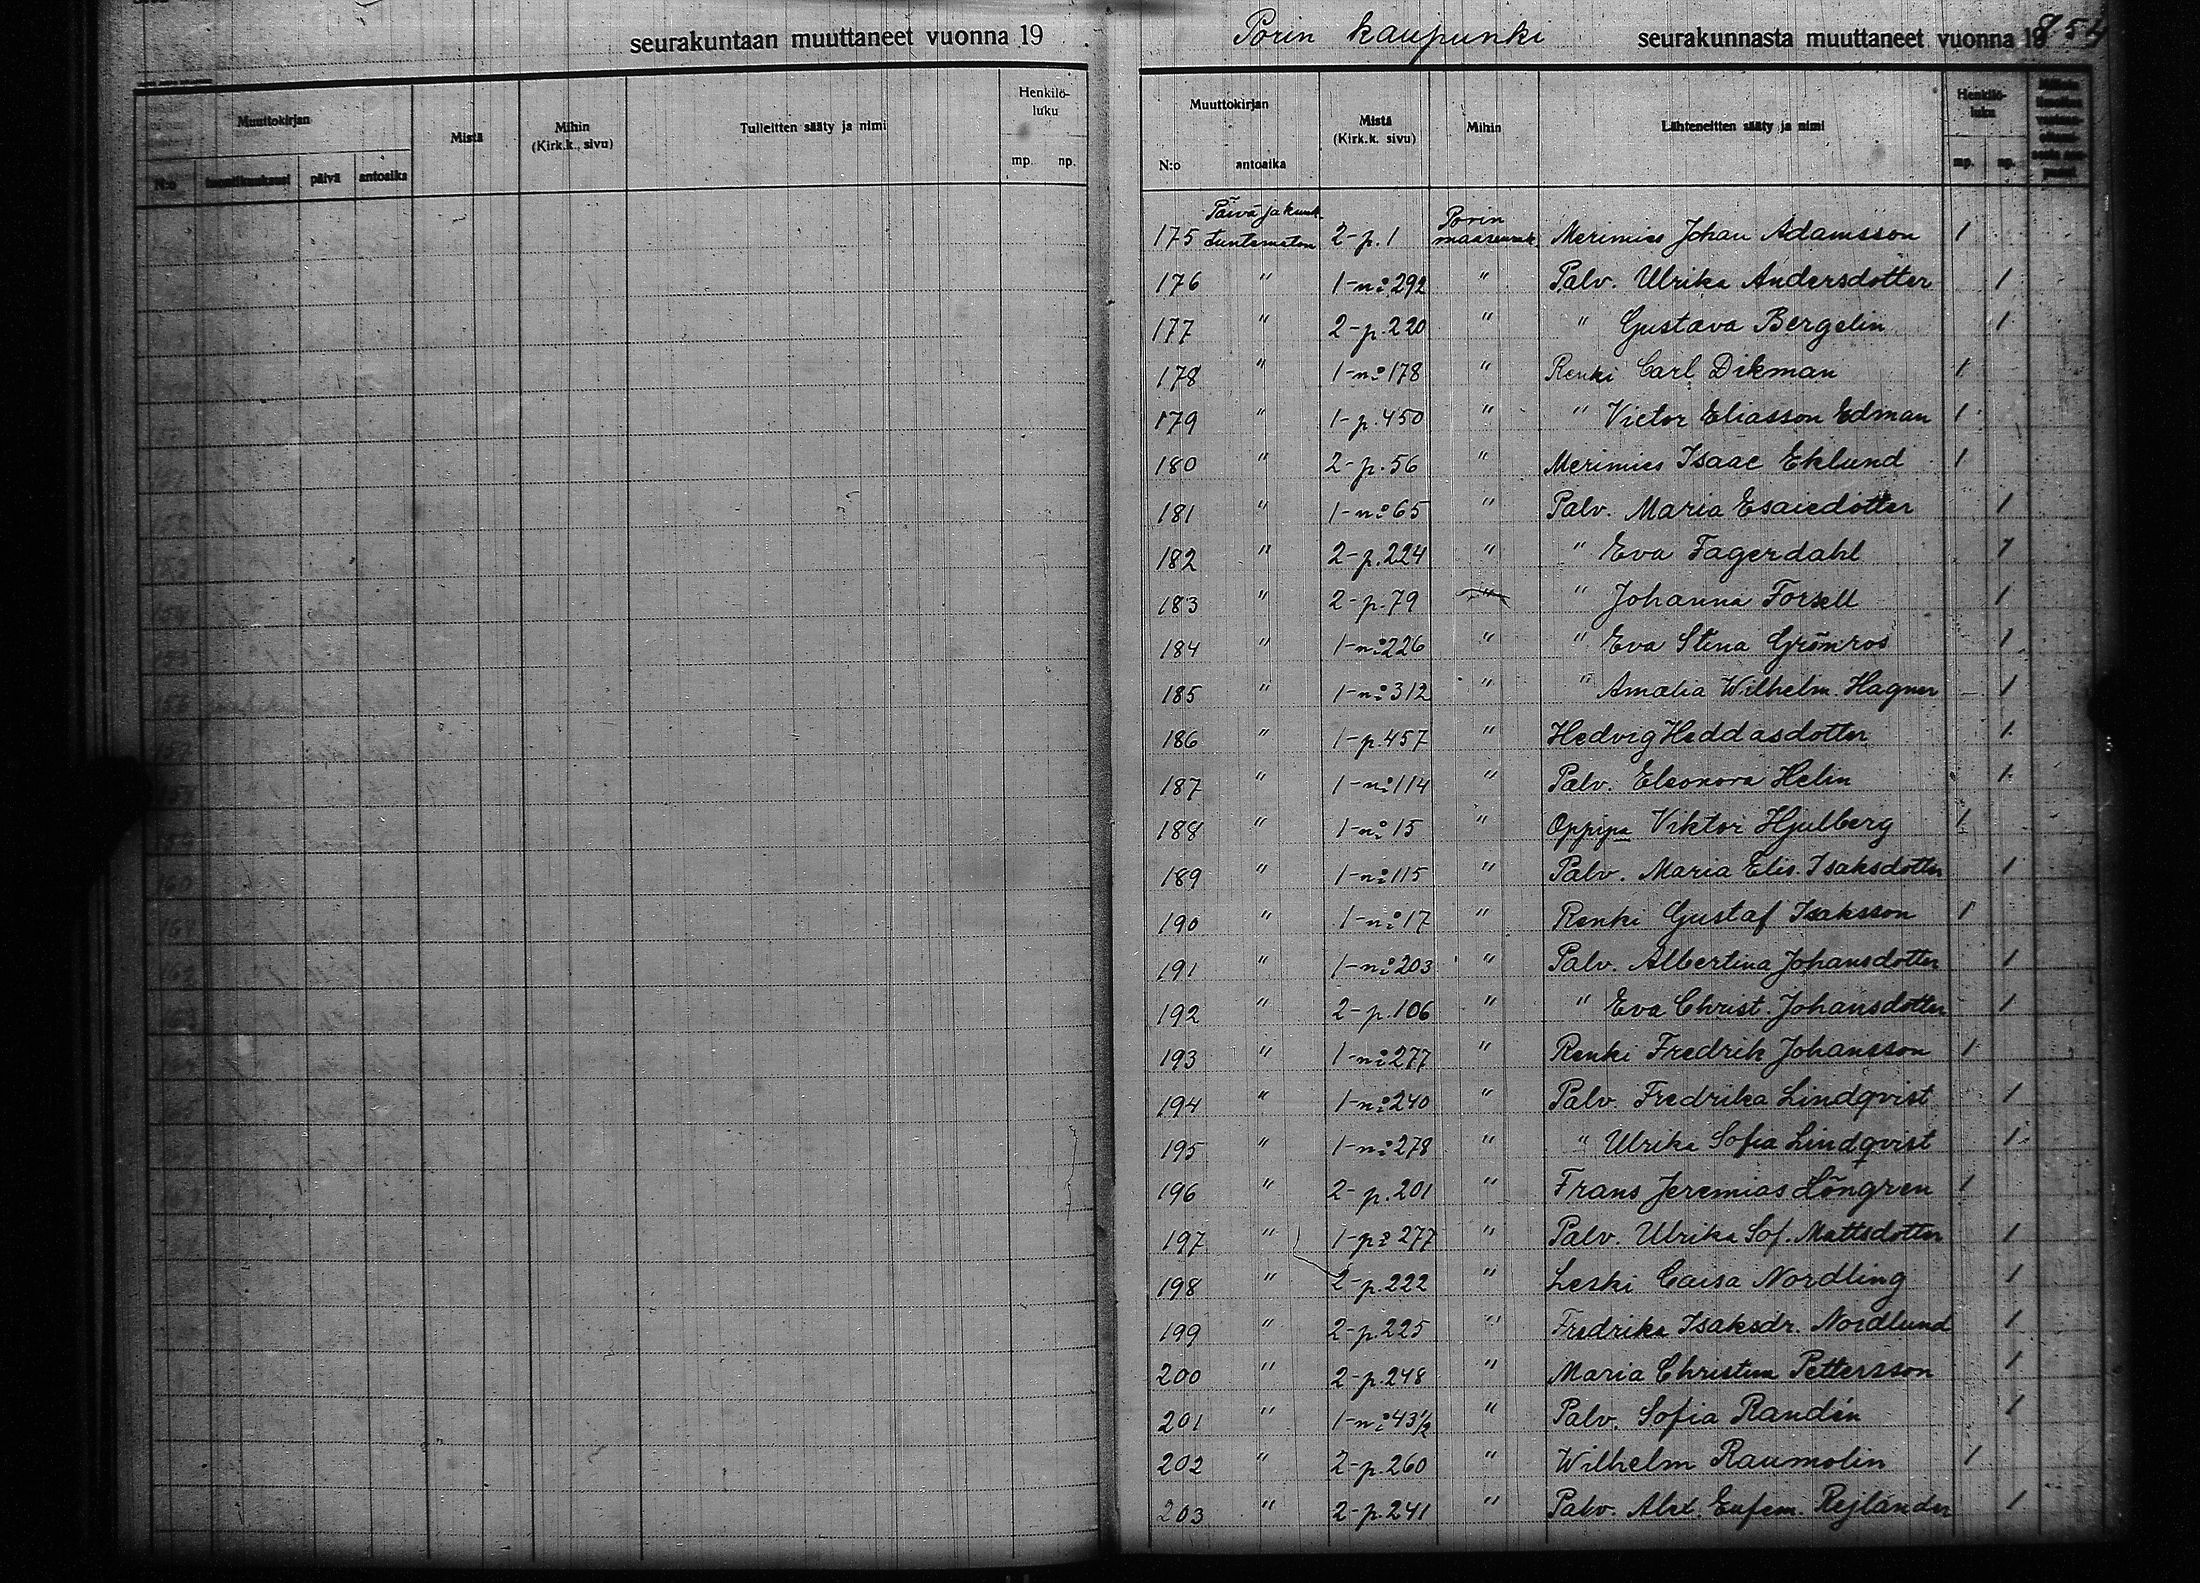 seurakuntaan muuttaneet vuonna 19
Muuttokirjan
Mistä
Mihin
(Kirk.k., sivu)
Tulleitten sääty ja nimi
Henkilö-
luku
N:o päivä antoaika mp. np.
Porin kaupunki seurakunnasta muuttaneet vuonna 1854
Muuttokirjan
Mistä
(Kirk.k. sivu)
Mihin
Lähteneitten sääty ja nimi
Henkilö-
luku
N:o antoaika mp. np.
175 Päivä ja kuuk. tuntematon 2-p.1 Porin maaseurak. Merimies Johan Adamsson 1
176 " 1-n:o 292 " Palv. Ulrika Andersdotter 1
177 " 2-p.220 " " Gustava Bergelin 1
178 " 1-n:o 178 " Renki Carl Dikman 1
179 " 1-p.450 " " Victor Eliasson Edman 1
180 " 2-p.56 " Merimies Isaac Eklund 1
181 " 1-n:o 65 " Palv. Maria Esaiedotter 1
182 " 2-p.224 " " Eva Fagerdahl 1
183 " 2-p.79 " " Johanna Forsell 1
184 " 1-n:o 226 " " Eva Stina Grönroos 1
185 " 1-n:o 312 " " Amalia Wilhelm. Hagner 1
186 " 1-p.457 " Hedvig Heddasdotter 1
187 " 1-n:o 114 " Palv. Eleonora Helin 1
188 " 1-n:o 15 " Oppipa Viktor Hjulberg 1
189 " 1-n:o 115 " Palv. Maria Elis. Isaksdotter 1
190 " 1-n:o 17 " Renki Gustaf Isaksson 1
191 " 1-n:o 203 " Palv. Albertina Johansdotter 1
192 " 2-p.106 " " Eva Christ. Johansdotter 1
193 " 1-n:o 277 " Renki Fredrik Johansson 1
194 " 1-n:o 240 " Palv. Fredrika Lindqvist 1
195 " 1-n:o 278 " " Ulrika Sofia Lindqvist 1
196 " 2-p.201 " Frans Jeremias Löngren 1
197 " 1-p: 277 " Palv. Ulrika Sof. Mattsdotter 1
198 " 2-p.222 " Leski Caisa Nordling 1
199 " 2-p.225 " Fredrika Isaksdr. Nordlund 1
200 " 2-p.248 " Maria Christina Pettersson 1
201 " 1-n:o 43½ " Palv. Sofia Randén 1
202 " 2-p.260 " Wilhelm Raumolin 1
203 " 2-p.241 " Palv. Alex. Eufem. Rejlander 1